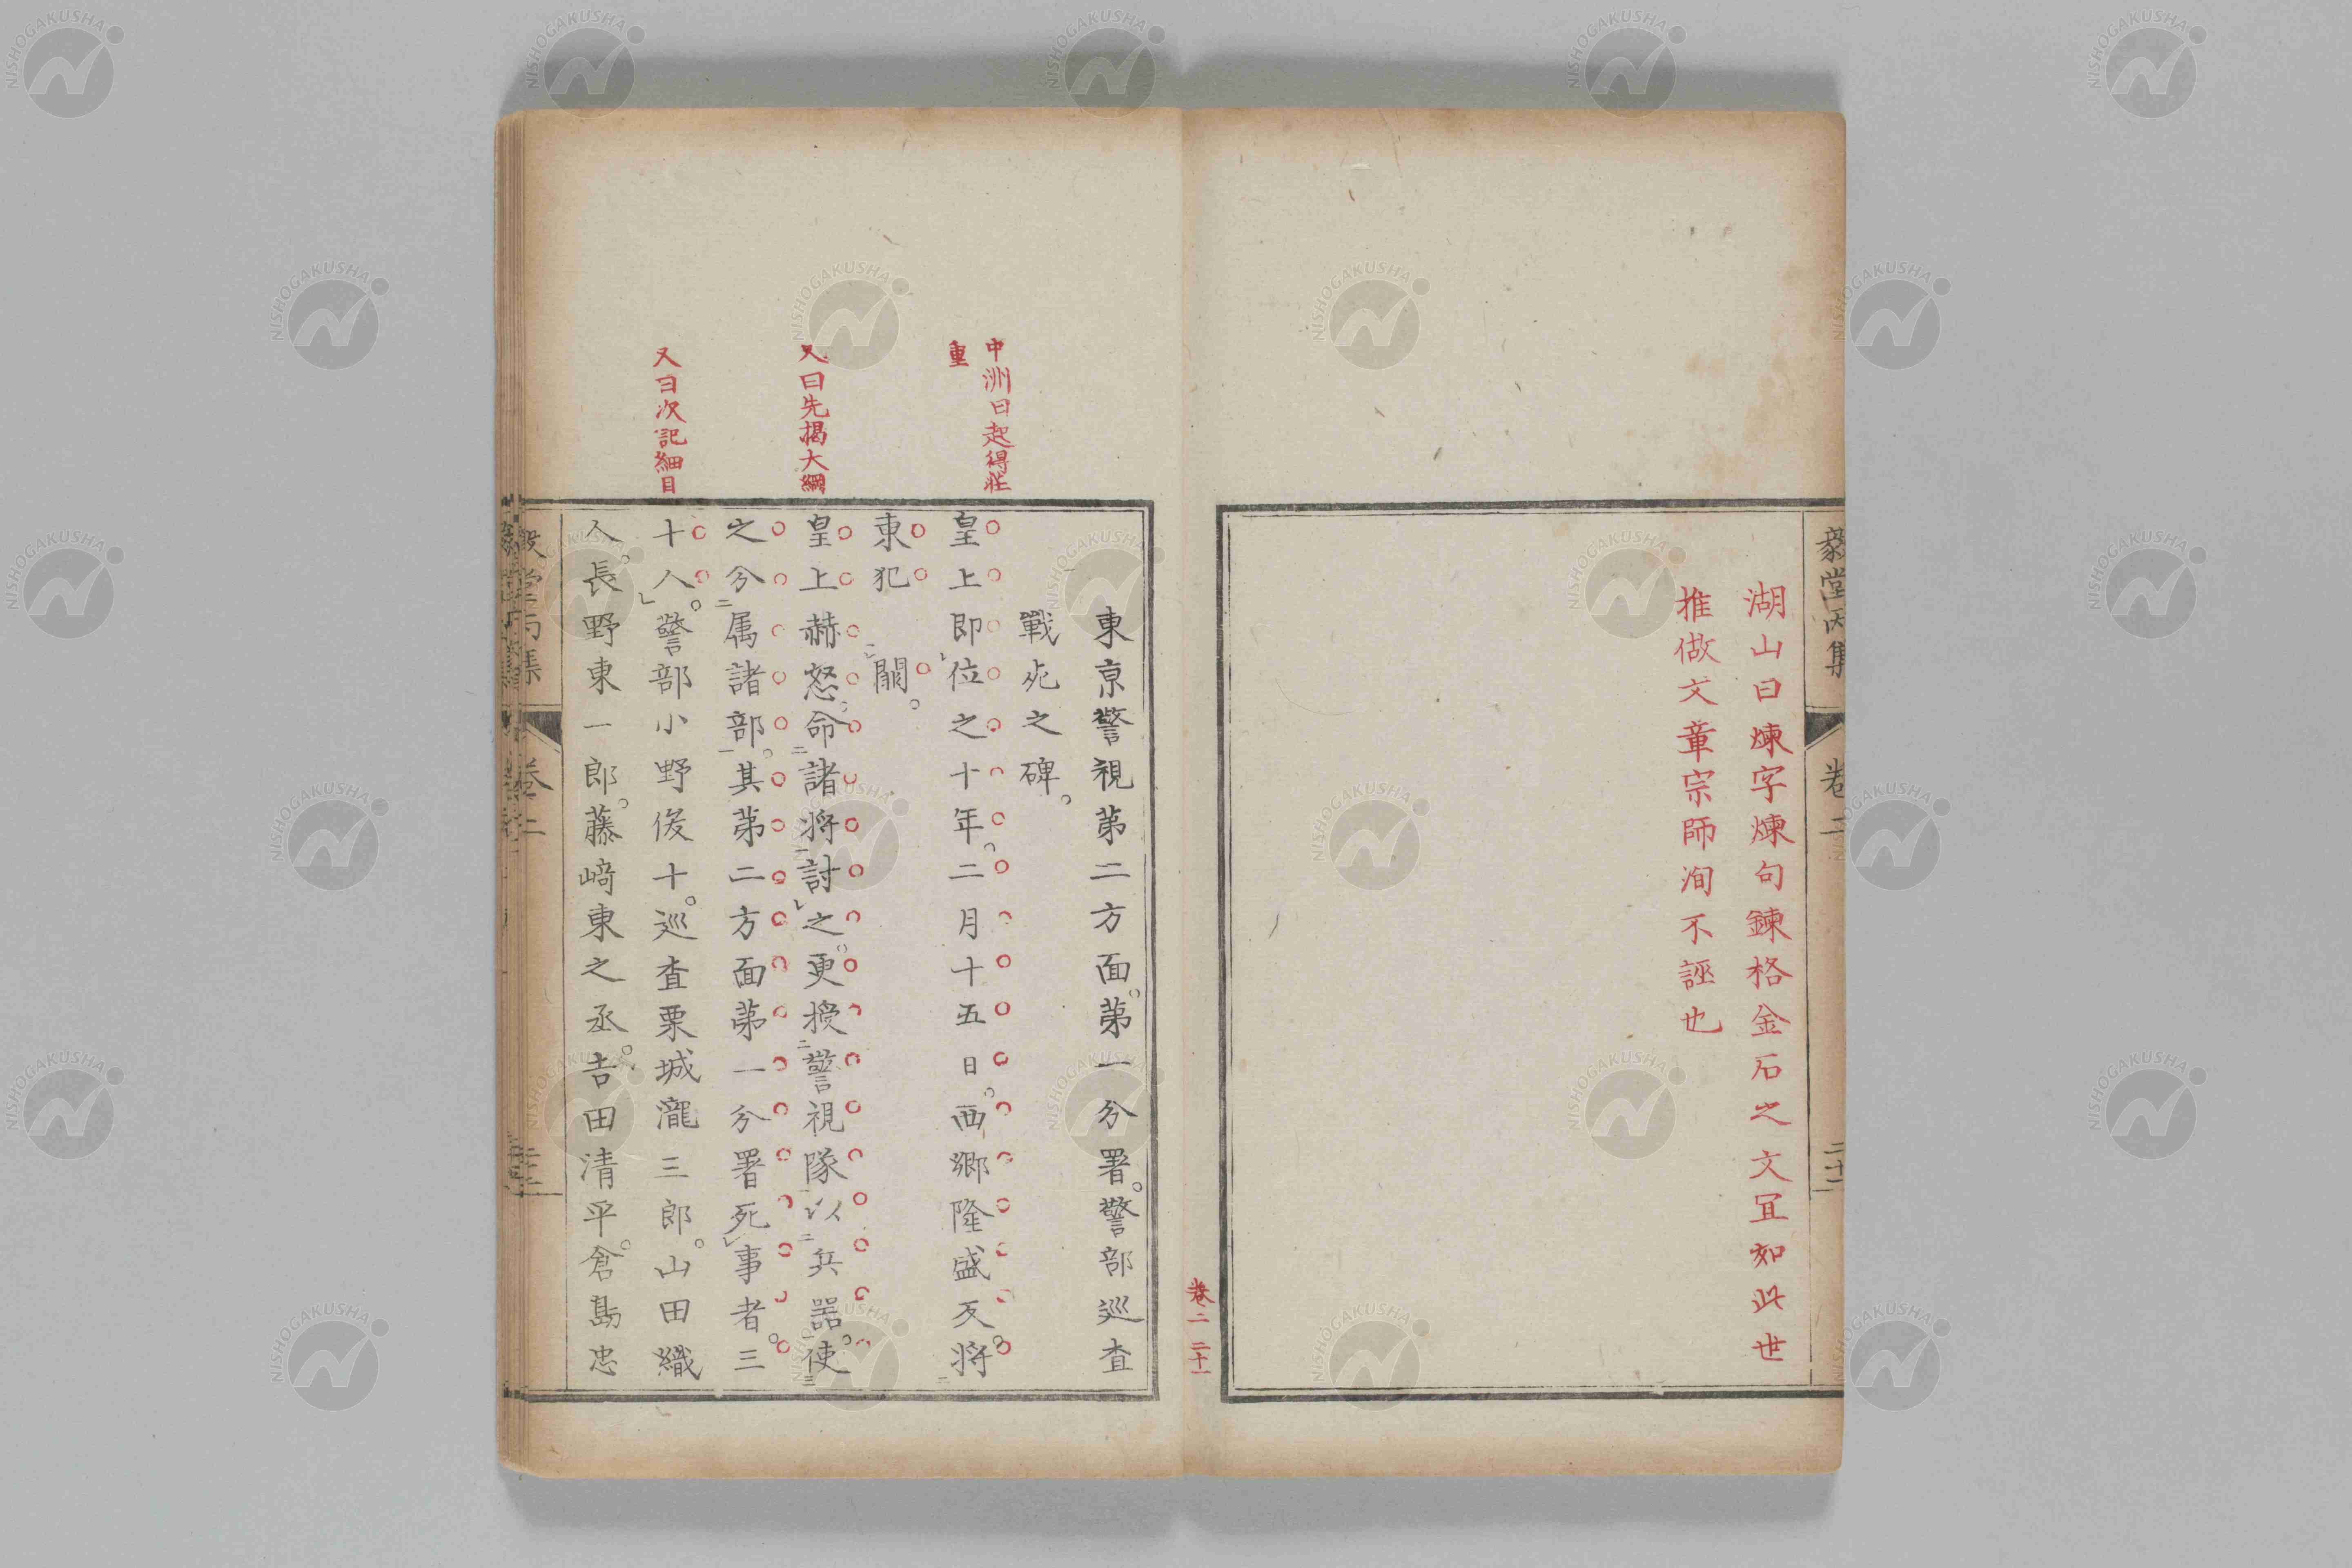 毅堂丙集
卷二
二十一
湖山曰煉字煉句鍊格金石之文冝如此世
推做文章宗師洵不誣也
卷二 二十一
東京警視第二方面。第一分署。警部巡査
戰死之碑。
中洲曰起得莊
重
皇上即位之十年。二月十五日。西郷隆盛反。將
東犯
闕。
又曰先揭大綱
皇上赫怒。命諸將討之。更授警視隊以兵器。使
之分属諸部。其第二方面第一分署死事者。三
又曰次記細目
十人。警部小野俊十。巡査栗城瀧三郎。山田織
人。長野東一郎。藤﨑東之丞。吉田清平。倉島忠
毅堂丙集
卷二
NISHOGAKUSHA